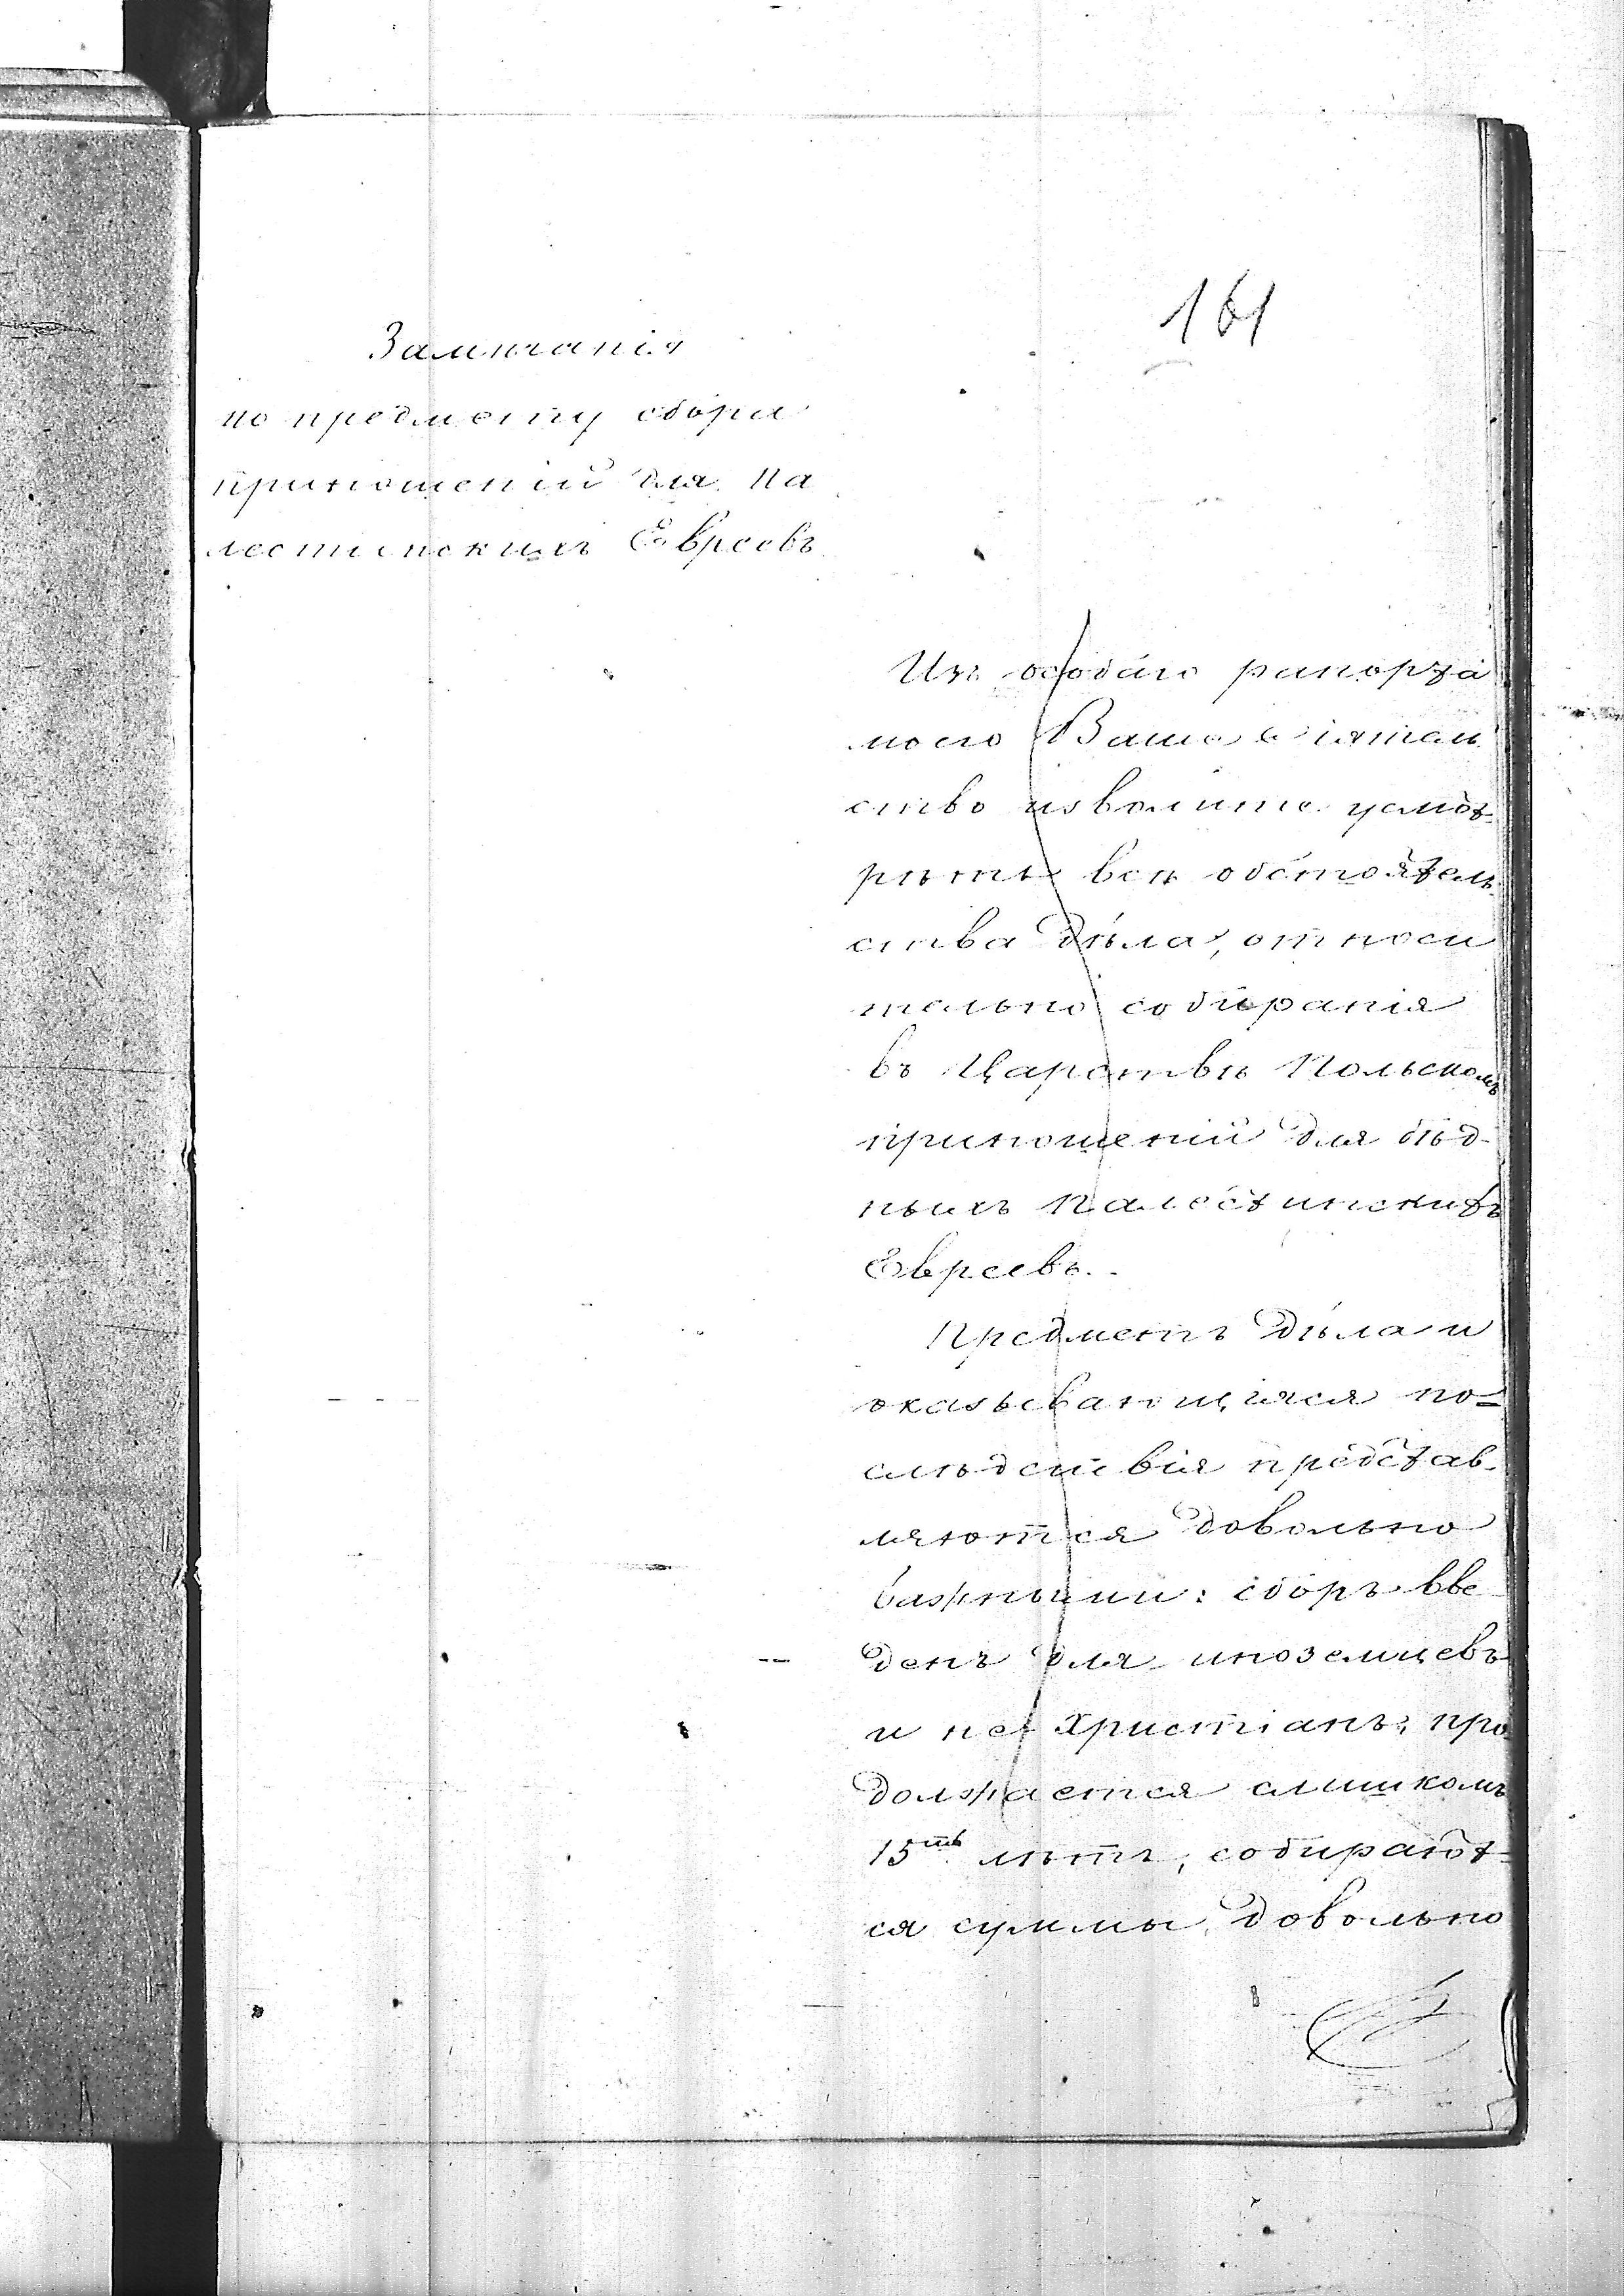 161
Замѣчанія
по предмету сбора
приношеній для Па
лестинскихъ Евреевъ.
Изъ особаго рапорта
моего Ваше Сіятель
ство изволите усмот-
рѣть всѣ обстоятель
ства дѣла, относи
тельно собиранія
въ Царствѣ Польскомъ
приношеній для бѣд-
ныхъ Палестинскихъ
Евреевъ.
Предметъ дѣла и
оказывающіяся по-
слѣдствія представ-
ляются довольно
важными: сборъ вве
денъ для иноземцевъ
и не Христіанъ, про
должается слишкомъ
15ть лѣтъ, собирают-
ся суммы довольно